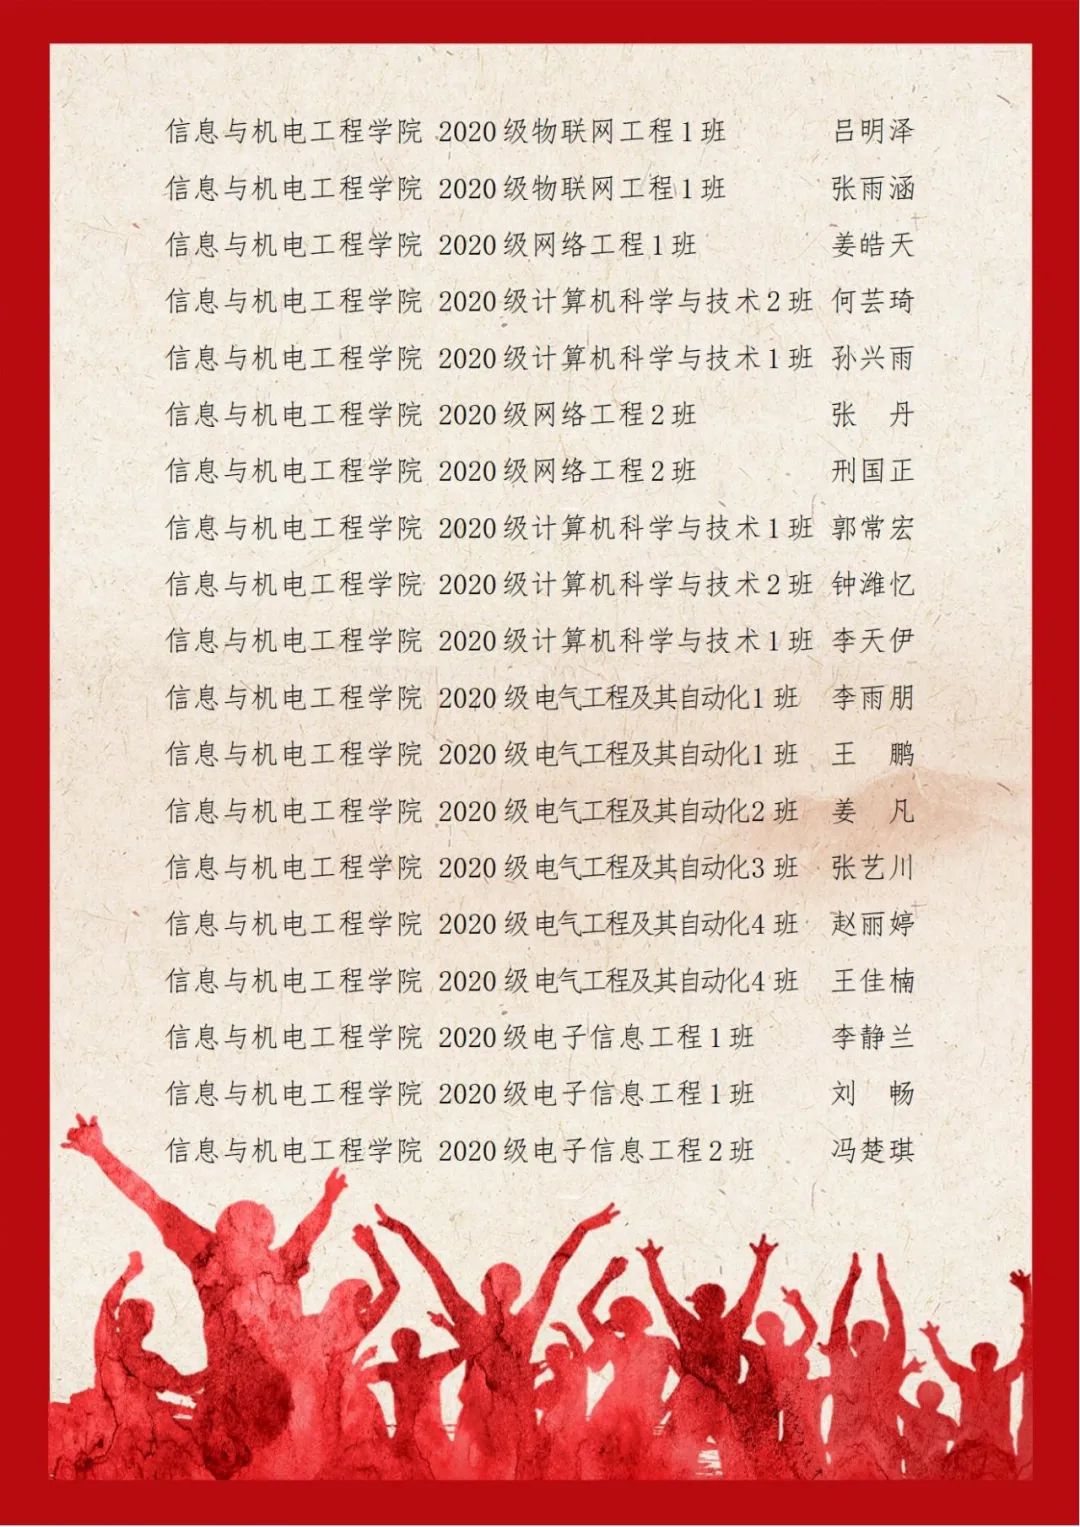 信息与机电工程学院 2020级物联网工程1班 吕明泽
信息与机电工程学院 2020级物联网工程1班 张雨涵
信息与机电工程学院 2020级网络工程1班 姜皓天
信息与机电工程学院 2020级计算机科学与技术2班 何芸琦
信息与机电工程学院 2020级计算机科学与技术1班 孙兴雨
信息与机电工程学院 2020级网络工程2班 张 丹
信息与机电工程学院 2020级网络工程2班 刑国正
信息与机电工程学院 2020级计算机科学与技术1班 郭常宏
信息与机电工程学院 2020级计算机科学与技术2班 钟潍忆
信息与机电工程学院 2020级计算机科学与技术1班 李天伊
信息与机电工程学院 2020级电气工程及其自动化1班 李雨朋
信息与机电工程学院 2020级电气工程及其自动化1班 王 鹏
信息与机电工程学院 2020级电气工程及其自动化2班 姜 凡
信息与机电工程学院 2020级电气工程及其自动化3班 张艺川
信息与机电工程学院 2020级电气工程及其自动化4班 赵丽婷
信息与机电工程学院 2020级电气工程及其自动化4班 王佳楠
信息与机电工程学院 2020级电子信息工程1班 李静兰
信息与机电工程学院 2020级电子信息工程1班 刘 畅
信息与机电工程学院 2020级电子信息工程2班 冯楚琪